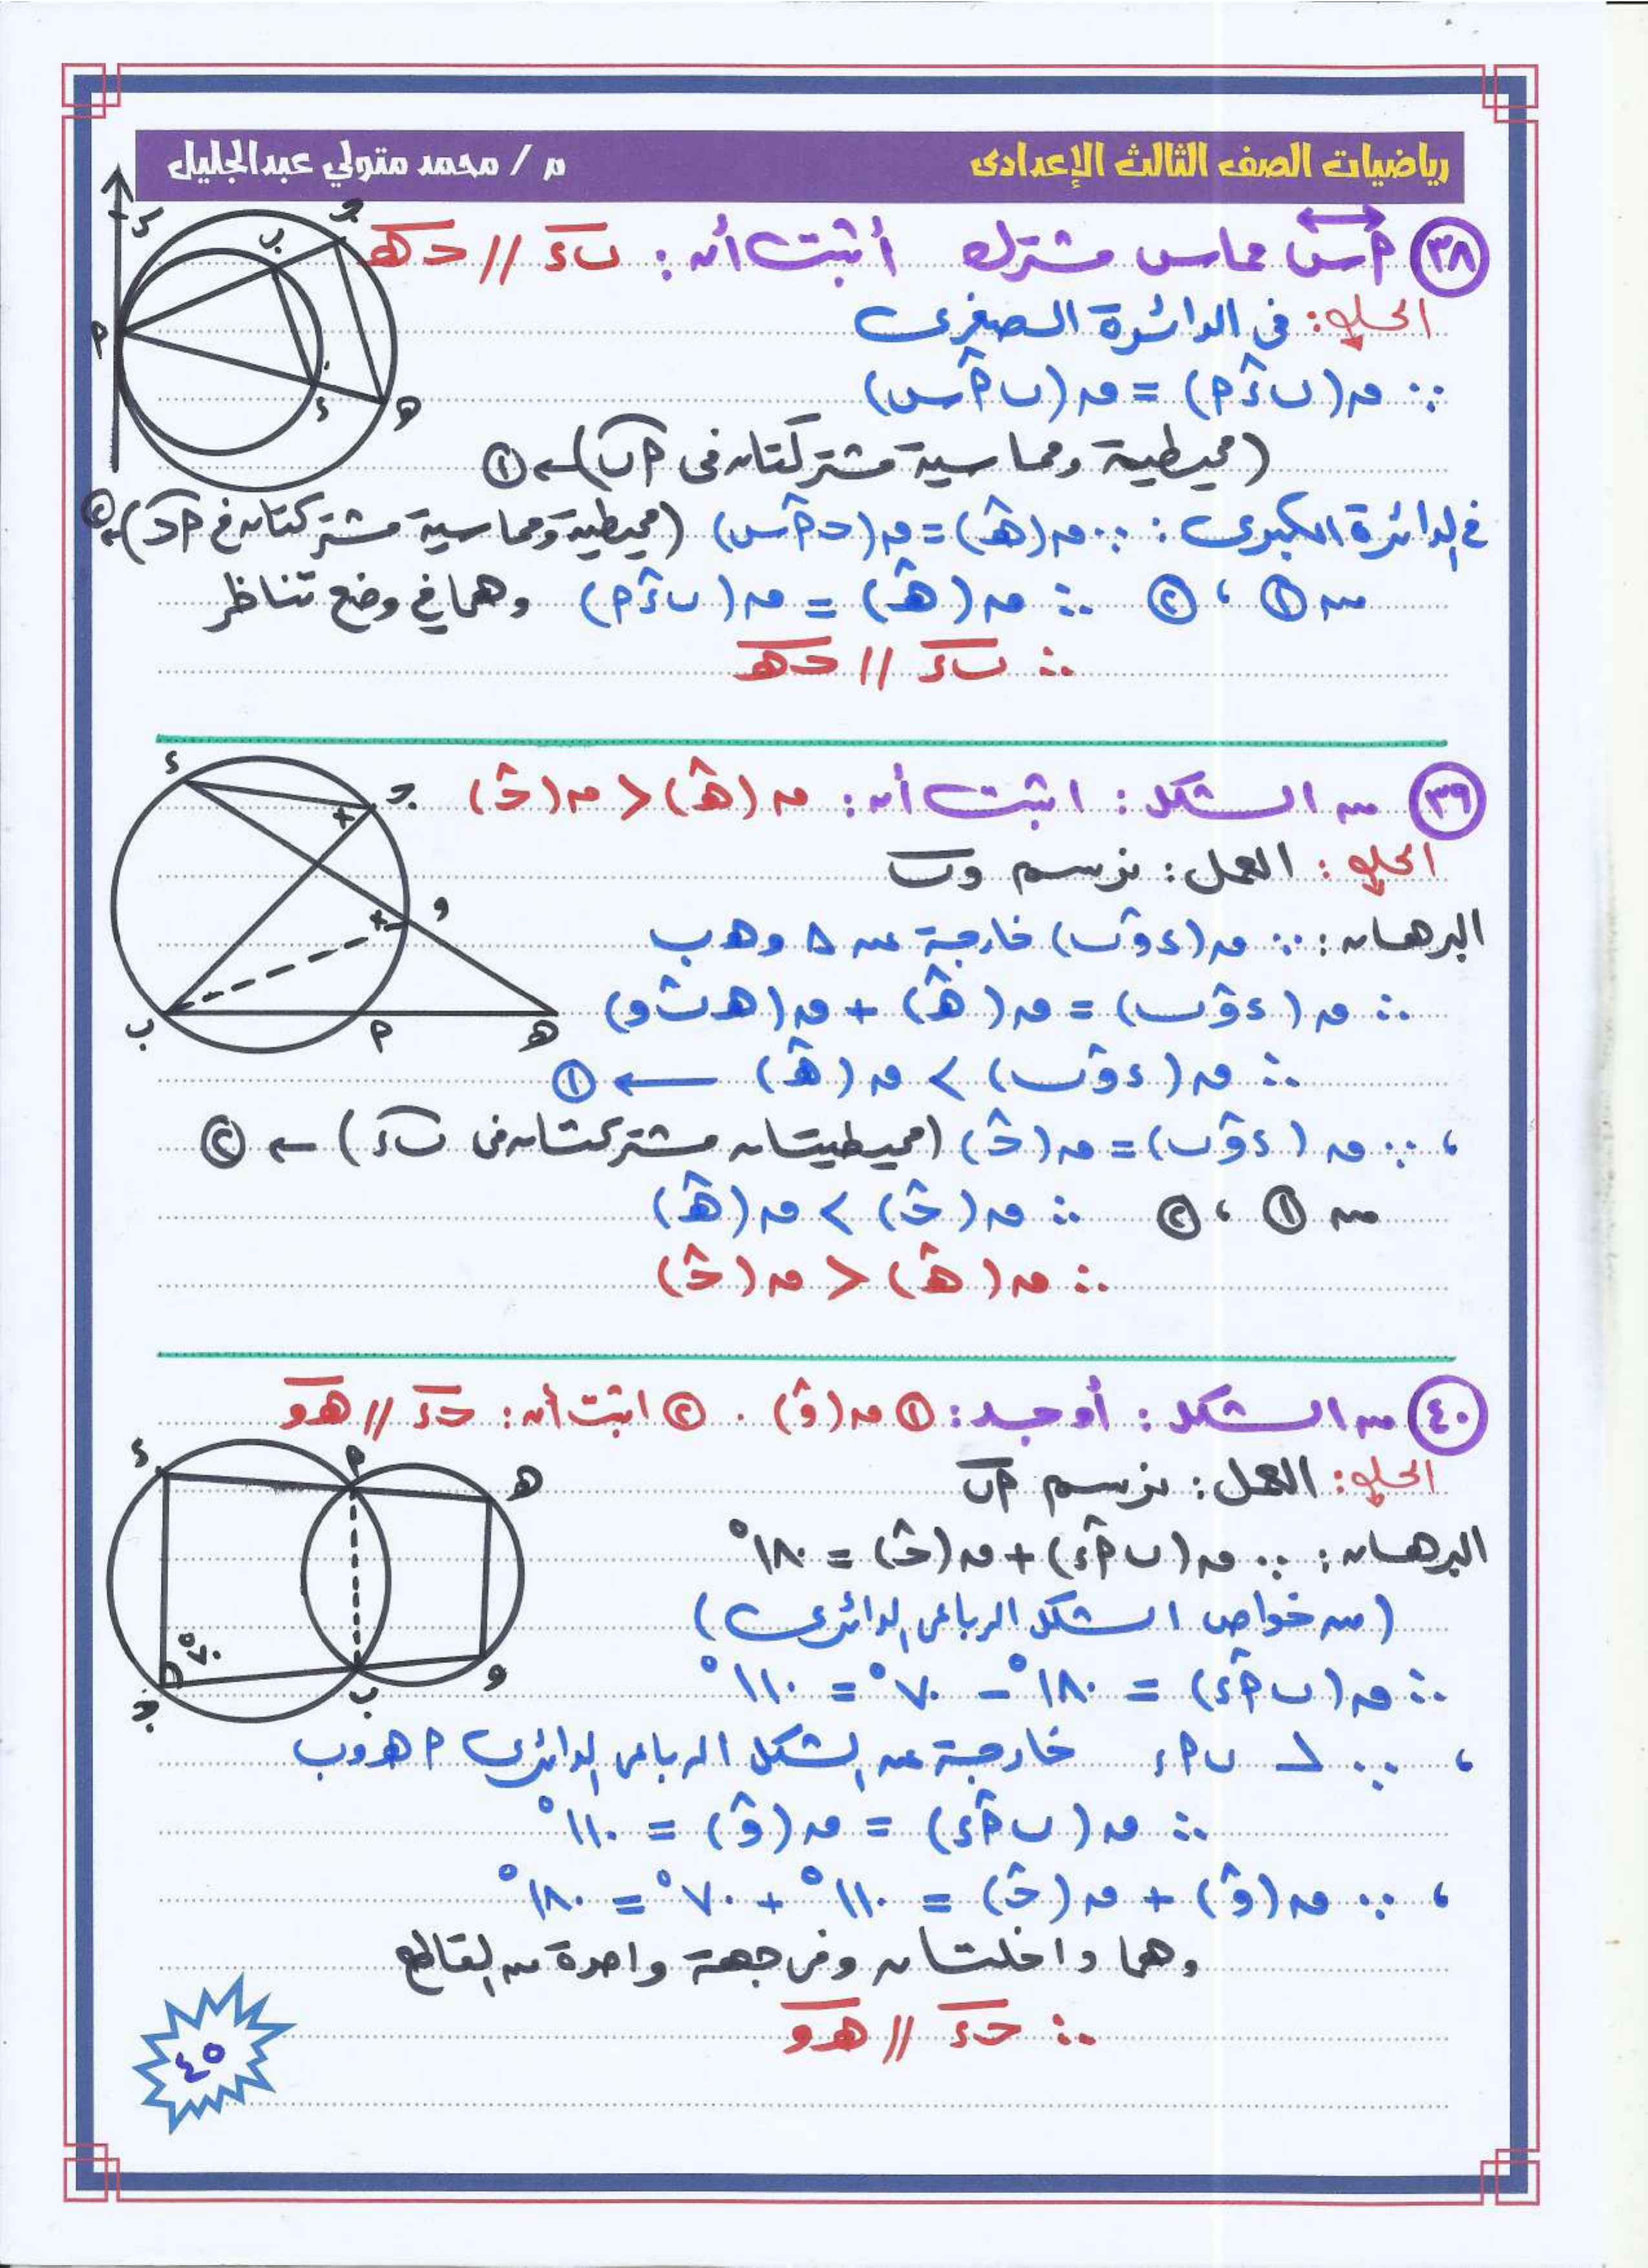 رياضيات الصف الثالث الإعدادى
م / محمد متولي عبدالجليل
٣٨ أس مماس مشترك أثبت أن : بء // حھ
الحل : فى الدائرة الصغرى
∵ ق(بءأ) = ق(بأس)
(محيطية ومماسية مشتركتان فى أب) ← ١
فى الدائرة الكبرى : ∵ ق(ھ) = ق(حأس) (محيطية ومماسية مشتركتان فى أح) ← ٢
من ١ ، ٢ ∴ ق(ھ) = ق(بءأ) وهما فى وضع تناظر
∴ بء // حھ
س
ح
ب
أ
ء
ھ
٣٩ من الشكل : اثبت أن : ق(ھ) < ق(ح)
الحل : العمل : نرسم وب
البرهان : ∵ ق(ءوب) خارجة عن △ وھب
∴ ق(ءوب) = ق(ھ) + ق(ھبو)
∴ ق(ءوب) > ق(ھ) ← ١
، ∵ ق(ءوب) = ق(ح) (محيطيتان مشتركتان فى بء) ← ٢
من ١ ، ٢ ∴ ق(ح) > ق(ھ)
∴ ق(ھ) < ق(ح)
ء
ح
و
ب
أ
ھ
٤٠ من الشكل : أوجد : ١ ق(و) . ٢ اثبت أن : حء // ھو
الحل : العمل : نرسم أب
البرهان : ∵ ق(بأء) + ق(ح) = ١٨٠°
(من خواص الشكل الرباعى الدائرى)
∴ ق(بأء) = ١٨٠° - ٧٠° = ١١٠°
، ∵ ∠ بأء خارجة عن الشكل الرباعى الدائرى أھوب
∴ ق(بأء) = ق(و) = ١١٠°
، ∵ ق(و) + ق(ح) = ١١٠° + ٧٠° = ١٨٠°
وهما داخلتان وفى جهة واحدة من القاطع
∴ حء // ھو
ء
أ
ھ
٧٠°
ح
ب
و
٤٥